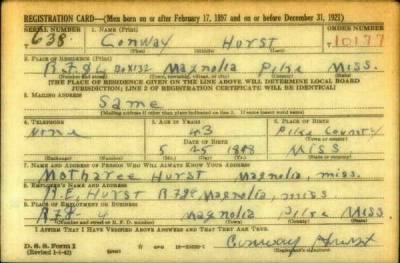 REGISTRATION CARD—(Men born on or after February 17, 1897 and on or before December 31, 1921)
SERIAL NUMBER 1. NAME (Print) ORDER NUMBER
T 638 Conway Hurst 10177
(First) (Middle) (Last)
2. PLACE OF RESIDENCE (Print)
Box 132 Magnolia Pike Miss.
(Number and street) (Town, township, village, or city) (County) (State)
[THE PLACE OF RESIDENCE GIVEN ON THE LINE ABOVE WILL DETERMINE LOCAL BOARD
JURISDICTION; LINE 2 OF REGISTRATION CERTIFICATE WILL BE IDENTICAL]
3. MAILING ADDRESS
Same
(Mailing address if other than place indicated on line 2. If same insert word same)
4. TELEPHONE 5. AGE IN YEARS 6. PLACE OF BIRTH
None 43 Pike County
DATE OF BIRTH (Town or county)
5 25 1898 Miss
(Exchange) (Number) (Mo.) (Day) (Yr.) (State or country)
7. NAME AND ADDRESS OF PERSON WHO WILL ALWAYS KNOW YOUR ADDRESS
Hurst Magnolia, miss.
8. EMPLOYER'S NAME AND ADDRESS
Hurst Magnolia, miss
9. PLACE OF EMPLOYMENT OR BUSINESS
4 Magnolia Pike Miss.
(Number and street or R. F. D. number) (Town) (County) (State)
I AFFIRM THAT I HAVE VERIFIED ABOVE ANSWERS AND THAT THEY ARE TRUE.
D. S. S. Form 1
(Revised 1-1-42) Conway Hurst
(Registrant's signature)